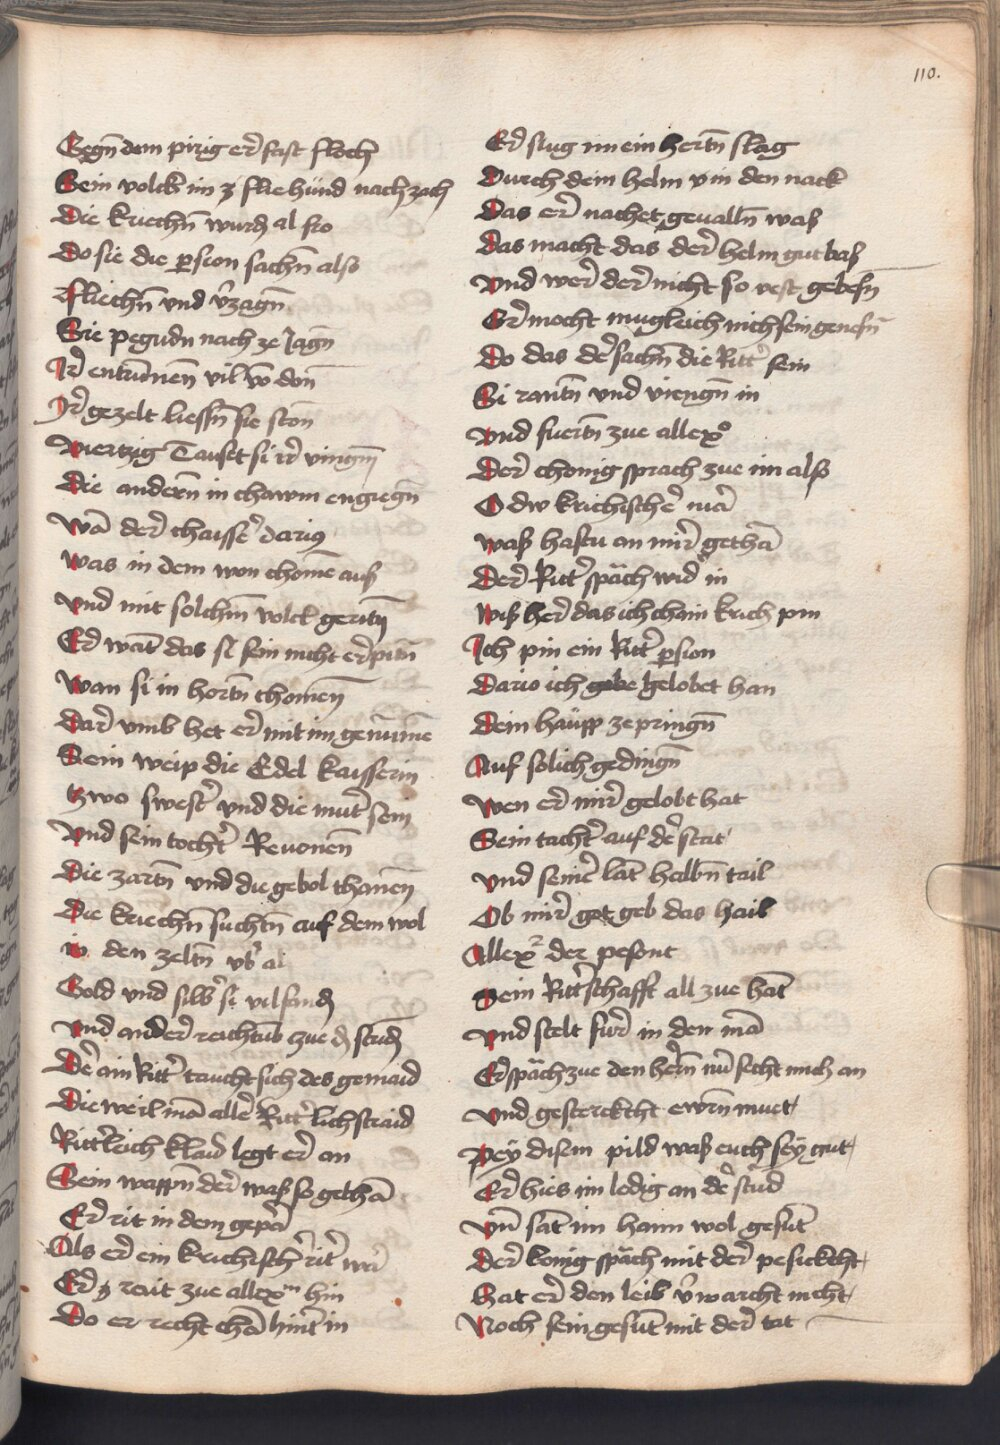 110.
Gegn̄ dem pirig er fast floch
Sein volck im ʒ fliehünd nach zoch
Die kriechn̄ wurdn al fro
Do sie die ꝑsion sachn̄ also
fliechn̄ vnd v̄zagn̄
Sie pegudn nach ze Jagn̄
Ir entrūnen vil vō don̄
Ir gezelt liessn̄ sie ston̄
viertzig Tauset si ir vingen
Die andern̄ in chawm engiegn̄
Wā der chaisser dariꝰ
was in dem won chomē auß
vnd mit solchm̄ volck geritn̄
Er wāt das si sein nicht erpitn̄
Wan si in hortn̄ chomen̄
Dar vmb het er mit im genūmē
Sein weip die Edel kaisserin
zwo swester vnd die muter sein
vnd sein tochter Reuonen̄
Die zartn̄ vnd die gebol thanen̄
Die kriechn̄ suchtn̄ auf dem wol
in den zeltn̄ vber al
Gold vnd silber si vil fandn
vnd ander reichtūb zue der stundn
Der ain Ritter taucht sich des gemaid
Die weil mā aller Ritterlich straid
Ritterleich klaid legt er an
Sein wappn̄ der waß so gethā
Er rit in dem gepār
Als er ein krichischer riter wār
Er reit zue allexm hin
Do er recht chā hinter in
Er slug im ein hertn̄ slag
Durch dem helm vm den nack
Das er nachet geualln̄ waß
Das macht das der helm gut waß
vnd wer der nicht so vest gebesn̄
Er mocht mugleich nich sein genesn̄
Do das der sachn̄ die Ritter sein
Si rantn̄ vnd viengn̄ in
vnd fuertn̄ zue allexº
Der chonig sprach zue im also
O dw krichischer mā
waß hastu an mir gethā
Der Ritter spāch wider in
wiß her das ich chain krich pin
Ich pin ein Ritter ꝑsion
Dario ich gebe gelobet han
Dein haupp ze pringn̄
Auf solich gedingn̄
wen er mir gelobt hat
Sein tachter auf der stat
vnd seiner lāt halbn̄ tail
Ob mir got geb das hail
Allexʳ der pesont
Sein Ritterschafft all zue hāt
vnd stelt fur in den mā
Er spāch zue den hern̄ nū secht mich an
vnd gesterckcht ewrn muet
Pey disem pild waß euch sey gut
Er hies im ledig an der stund
vn̄ sāt im haim wol gesūt
Der konig spāch mit der pesickcht
hat er den leib v̄warcht nicht
Noch sein gesūt mit der tat